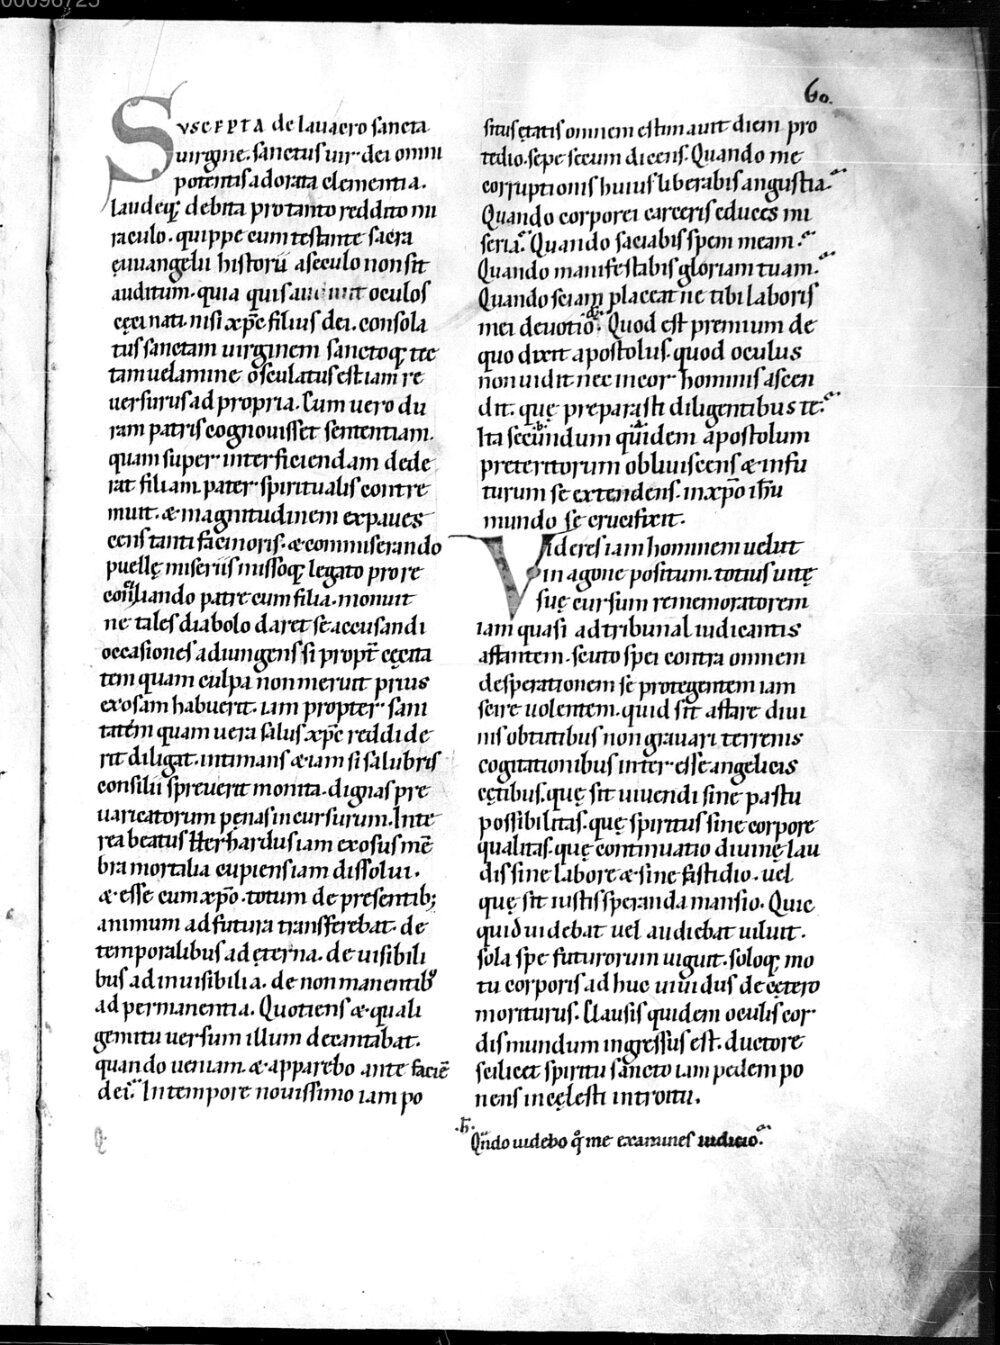 00098725
60.
SVSCEPTA de lauacro sancta
uirgine. sanctus uir dei omni
potentis adorata clementia.
laudeq; debita pro tanto reddito mi
raculo. quippe cum testante sacra
ęuuangelii historia a seculo non sit
auditum. quia quis oculos
cęci nati. nisi xp̄c filius dei. consola
tus sanctam uirginem sanctoq; tec
tam uelamine osculatus est iam re
uersurus ad propria. Cum uero du
ram patris cognouisset sententiam.
quam super interficiendam dede
rat filiam. pater spiritualis contre
muit. & magnitudinem expaues
cens tanti facinoris. & commiserando
puellę miseriis missoq; legato pro re
conciliando patre cum filia. monuit
ne tales diabolo daret se accusandi
occasiones adiungens si propt̄ cęcita
tem quam culpa non meruit prius
exosam habuerit. iam propter sani
tatem quam uera salus xp̄c reddide
rit diligat. intimans & iam si salubris
consilii spreuerit monita. dignas pre
uaricatorum penas incursurum. Inte
rea beatus Herhardus iam exosus mē
bra mortalia cupiens iam dissolui.
& esse cum xp̄o. totum de presentib;
animum ad futura transferebat. de
temporalibus ad ęterna. de uisibili
bus ad inuisibilia. de non manentib;
ad permanentia. Quotiens & quali
gemitu uersum illum decantabat.
quando ueniam. & apparebo ante faciē
dei. In tempore nouissimo iam po
situs ętatis omnem estimauit diem pro
tedio. sepe secum dicens. Quando me
corruptionis huius liberabis angustia.
Quando corporei carceris educes mi
seria. Quando saciabis spem meam.
Quando manifestabis gloriam tuam.
Quando sciam placeat ne tibi laboris
mei deuotio. Quod est premium de
quo dixit apostolus. quod oculus
non uidit nec in cor hominis ascen
dit. quę preparasti diligentibus te.
Ita secundum quidem apostolum
preteritorum obliuiscens & in fu
turum se extendens. in xp̄o ih̄u
mundo se crucifixit.
Videres iam hominem uelut
in agone positum. totius uitę
suę cursum rememoratorem
iam quasi ad tribunal iudicantis
astantem. scuto spei contra omnem
desperationem se protegentem iam
scire uolentem. quid sit astare diui
nis obtutibus non grauari terrenis
cogitationibus inter esse angelicis
cętibus. quę sit uiuendi sine pastu
possibilitas. quę spiritus sine corpore
qualitas. quę continuatio diuinę lau
dis sine labore & sine fastidio. uel
quę sit iustis speranda mansio. Quic
quid uidebat uel audiebat uiluit.
sola spe futurorum uiguit. soloq; mo
tu corporis ad huc uiuidus de cętero
moriturus. Clausis quidem oculis cor
dis mundum ingressus est. ductore
scilicet spiritu sancto iam pedem po
nens in cęlesti introitu.
.h̄. Qn̄do uidebo me examines iudicio.